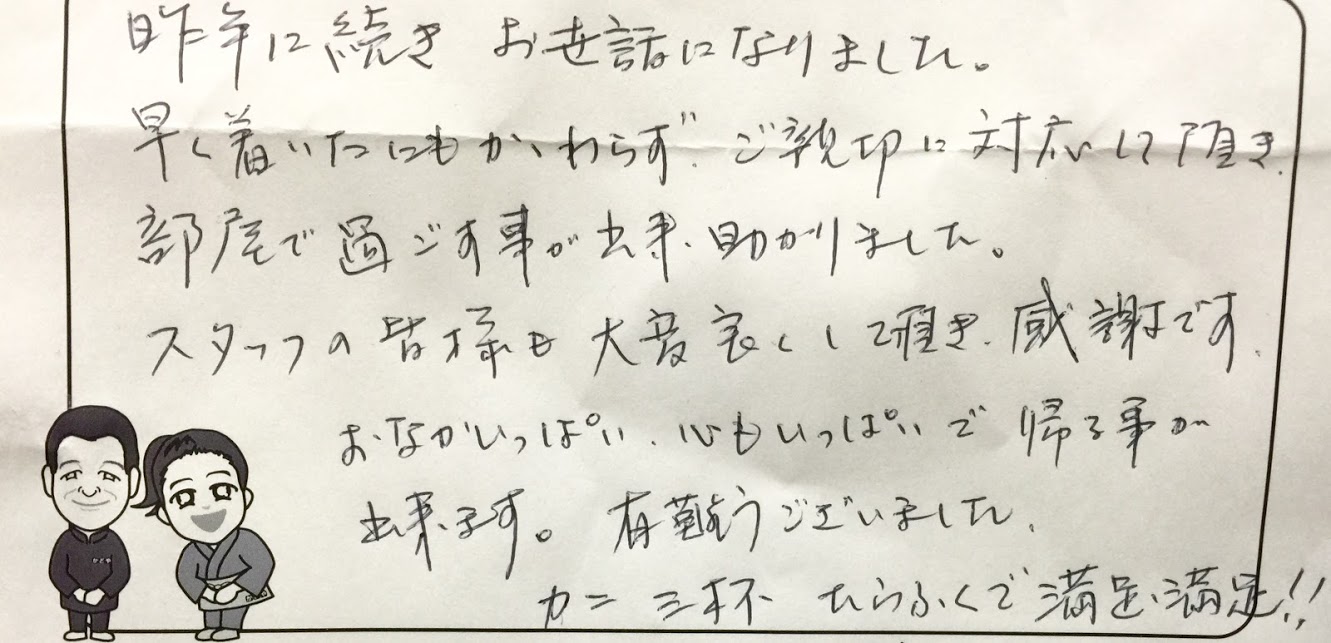 昨年に続き お世話になりました。
早く着いたにもかゝわらず、ご親切に対応して頂き、
部屋で過ごす事が出来、助かりました。
スタッフの皆様も大変良くして頂き、感謝です。
おなかいっぱい、心もいっぱいで帰る事が
出来ます。有難うございました。
カニ 三杯 たらふくで満足、満足!!